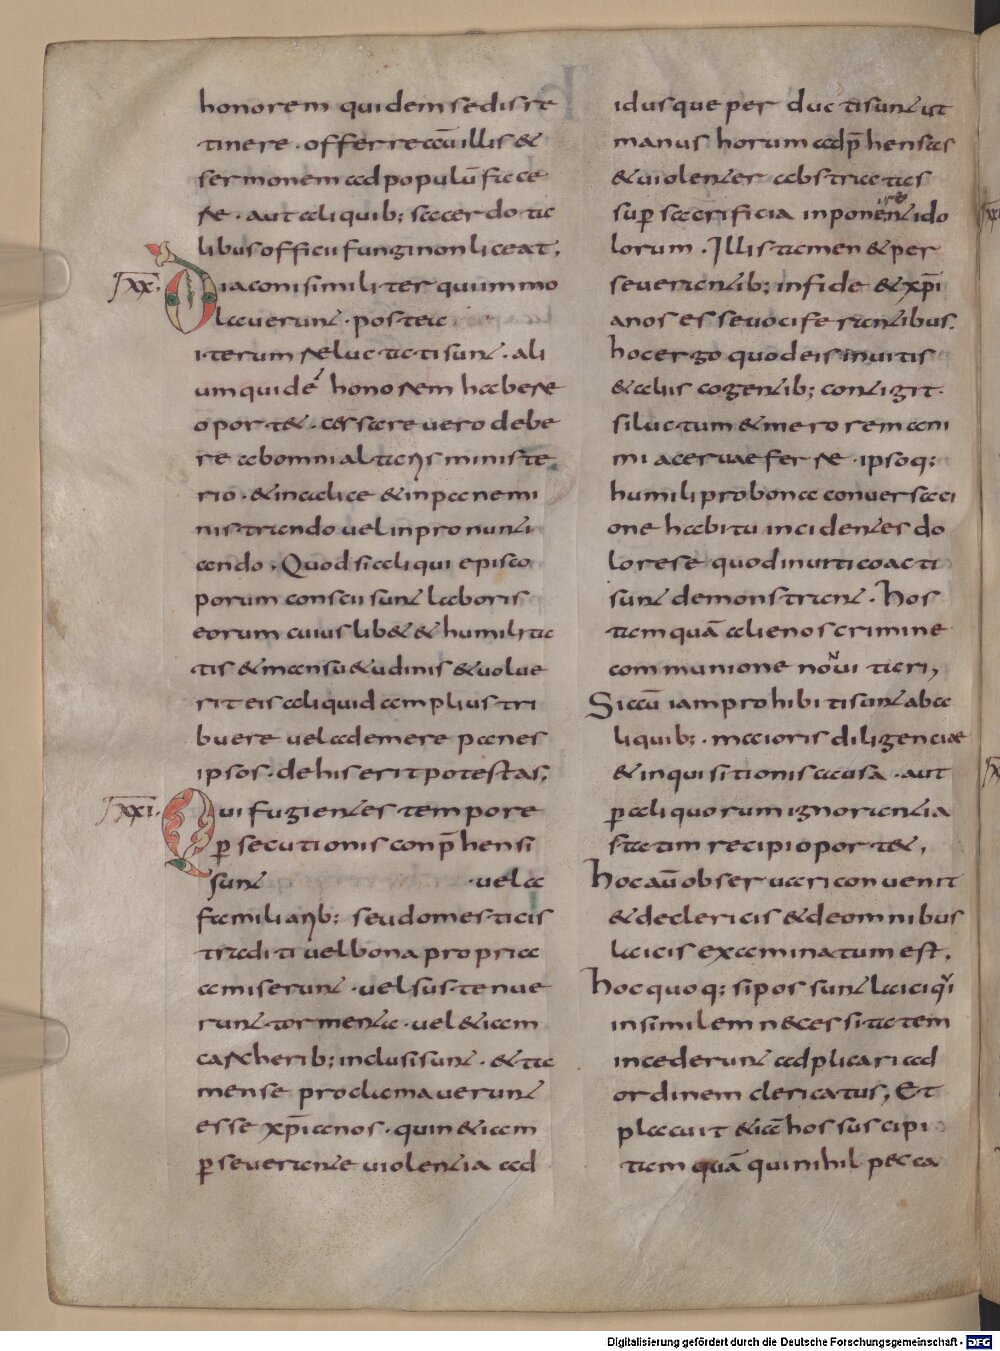 honorem quidem sedis re
tinere · offerre aū illis &
sermonem ad populū face
re · aut aliquib; sacerdota
libus officii fungi non liceat;
XX. Diaconi similiter qui immo
laverunt · postea
iterum reluctati sunt · ali
um quidē honorem habere
oport& · cessare vero debe
re ab omni altaris ministe
rio · & in calice & in pane mi
nistrando vel in pronunti
ando · Quod si aliqui episco
porum conscii sunt laboris
eorum cuiuslib& & humilita
tis & mansu&udinis & volue
rit eis aliquid amplius tri
buere vel ademere penes
ipsos · de his erit potestas;
XXI. Qui fugientes tempore
p secutionis conp̄hensi
sunt · vel a
familiarib; seu domesticis
traditi vel bona propria
amiserunt · vel sustenue
runt tormenta · vel &iam
carcherib; inclusi sunt · & ta
mense proclamaverunt
esse xp̄ianos · quin &iam
p severante violentia ad
idusque per ducti sunt ut
manus horum adp̄hensas
& violenter abstractas
sup sacrificia inponerent ido
lorum · Illis tamen & per
severantib; in fide & xp̄i
anos esse vociferantibus.
hoc ergo quod eis invitis
& aliis cogentib; contigit ·
si luctum & merorem ani
mi acervae ferre · ipsoq;
humili pro bona conversaci
one habitu incidentes do
lorese quod inviti coacti
sunt demonstrant · Hos
tamquā alienos crimine
communione non vitari,
Si aū iam prohibiti sunt ab a
liquib; · maioris diligenciae
& inquisitionis causa · aut
p aliquorum ignorantia
statim recipi oport&,
Hoc aū observari convenit
& de clericis & de omnibus
laicis examinatum est,
Hoc quoq; si possunt laici qui
in similem necessitatem
incederunt adplicari ad
ordinem clericatus, Et
placuit &iā hos suscipi
tamquā qui nihil pecca
Digitalisierung gefördert durch die Deutsche Forschungsgemeinschaft - DFG